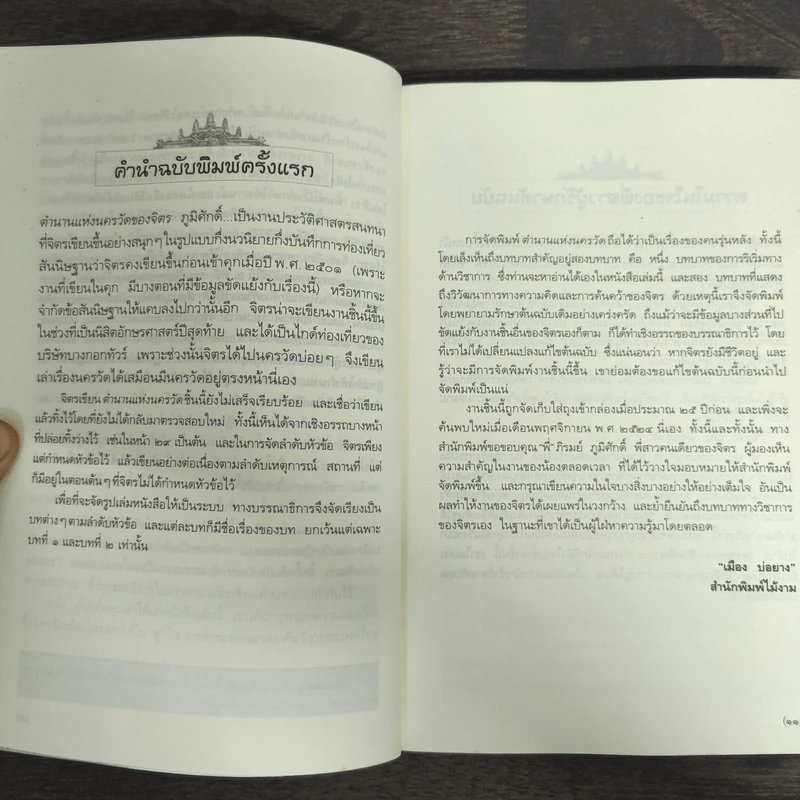 คำนำฉบับพิมพ์ครั้งแรก
ตำนานแห่งนครวัดของจิตร ภูมิศักดิ์...เป็นงานประวัติศาสตรสนทนา
ที่จิตรเขียนขึ้นอย่างสนุกๆ ในรูปแบบกึ่งนวนิยายกึ่งบันทึกการท่องเที่ยว
สันนิษฐานว่าจิตรคงเขียนขึ้นก่อนเข้าคุกเมื่อปี พ.ศ. ๒๕๐๑ (เพราะ
งานที่เขียนในคุก มีบางตอนที่มีข้อมูลขัดแย้งกับเรื่องนี้) หรือหากจะ
จำกัดข้อสันนิษฐานให้แคบลงไปกว่านั้นอีก จิตรน่าจะเขียนงานชิ้นนี้ขึ้น
ในช่วงที่เป็นนิสิตอักษรศาสตร์ปีสุดท้าย และได้เป็นไกด์ท่องเที่ยวของ
บริษัทบางกอกทัวร์ เพราะช่วงนั้นจิตรได้ไปนครวัดบ่อยๆ จึงเขียน
เล่าเรื่องนครวัดได้เสมือนมีนครวัดอยู่ตรงหน้านี่เอง
จิตรเขียน ตำนานแห่งนครวัด ชิ้นนี้ยังไม่เสร็จเรียบร้อย และเชื่อว่าเขียน
แล้วทิ้งไว้โดยที่ยังไม่ได้กลับมาตรวจสอบใหม่ ทั้งนี้เห็นได้จากเชิงอรรถบางหน้า
ที่ปล่อยทิ้งว่างไว้ เช่นในหน้า ๒๙ เป็นต้น และในการจัดลำดับหัวข้อ จิตรเพียง
แต่กำหนดหัวข้อไว้ แล้วเขียนอย่างต่อเนื่องตามลำดับเหตุการณ์ สถานที่ แต่
ก็มีอยู่ในตอนต้นๆ ที่จิตรไม่ได้กำหนดหัวข้อไว้
เพื่อที่จะจัดรูปเล่มหนังสือให้เป็นระบบ ทางบรรณาธิการจึงจัดเรียงเป็น
บทต่างๆ ตามลำดับหัวข้อ และแต่ละบทก็มีชื่อเรื่องของบท ยกเว้นแต่เฉพาะ
บทที่ ๑ และบทที่ ๒ เท่านั้น
การจัดพิมพ์ ตำนานแห่งนครวัด ถือได้ว่าเป็นเรื่องของคนรุ่นหลัง ทั้งนี้
โดยเล็งเห็นถึงบทบาทสำคัญอยู่สองบทบาท คือ หนึ่ง บทบาทของการริเริ่มทาง
ด้านวิชาการ ซึ่งท่านจะหาอ่านได้เองในหนังสือเล่มนี้ และสอง บทบาทที่แสดง
ถึงวิวัฒนาการทางความคิดและการค้นคว้าของจิตร ด้วยเหตุนี้เราจึงจัดพิมพ์
โดยพยายามรักษาต้นฉบับเดิมอย่างเคร่งครัด ถึงแม้ว่าจะมีข้อมูลบางส่วนที่ไป
ขัดแย้งกับงานชิ้นอื่นของจิตรเองก็ตาม ก็ได้ทำเชิงอรรถของบรรณาธิการไว้ โดย
ที่เราไม่ได้เปลี่ยนแปลงแก้ไขต้นฉบับ ซึ่งแน่นอนว่า หากจิตรยังมีชีวิตอยู่ และ
รู้ว่าจะมีการจัดพิมพ์งานชิ้นนี้ขึ้น เขาย่อมต้องขอแก้ไขต้นฉบับนี้ก่อนนำไป
จัดพิมพ์เป็นแน่
งานชิ้นนี้ถูกจัดเก็บใส่ถุงเข้ากล่องเมื่อประมาณ ๒๕ ปีก่อน และเพิ่งจะ
ค้นพบใหม่เมื่อเดือนพฤศจิกายน พ.ศ. ๒๕๒๔ นี่เอง ทั้งนี้และทั้งนั้น ทาง
สำนักพิมพ์ขอขอบคุณ "พี่" ภิรมย์ ภูมิศักดิ์ พี่สาวคนเดียวของจิตร ผู้มองเห็น
ความสำคัญในงานของน้องตลอดเวลา ที่ได้ไว้วางใจมอบหมายให้สำนักพิมพ์
จัดพิมพ์ขึ้น...และกรุณาเขียนความในใจบางสิ่งบางอย่างให้อย่างเต็มใจ อันเป็น
ผลทำให้งานของจิตรได้เผยแพร่ในวงกว้าง และย้ำยืนยันถึงบทบาททางวิชาการ
ของจิตรเอง ในฐานะที่เขาได้เป็นผู้ใฝ่หาความรู้มาโดยตลอด
"เมือง บ่อยาง"
สำนักพิมพ์ไม้งาม
(๑๑